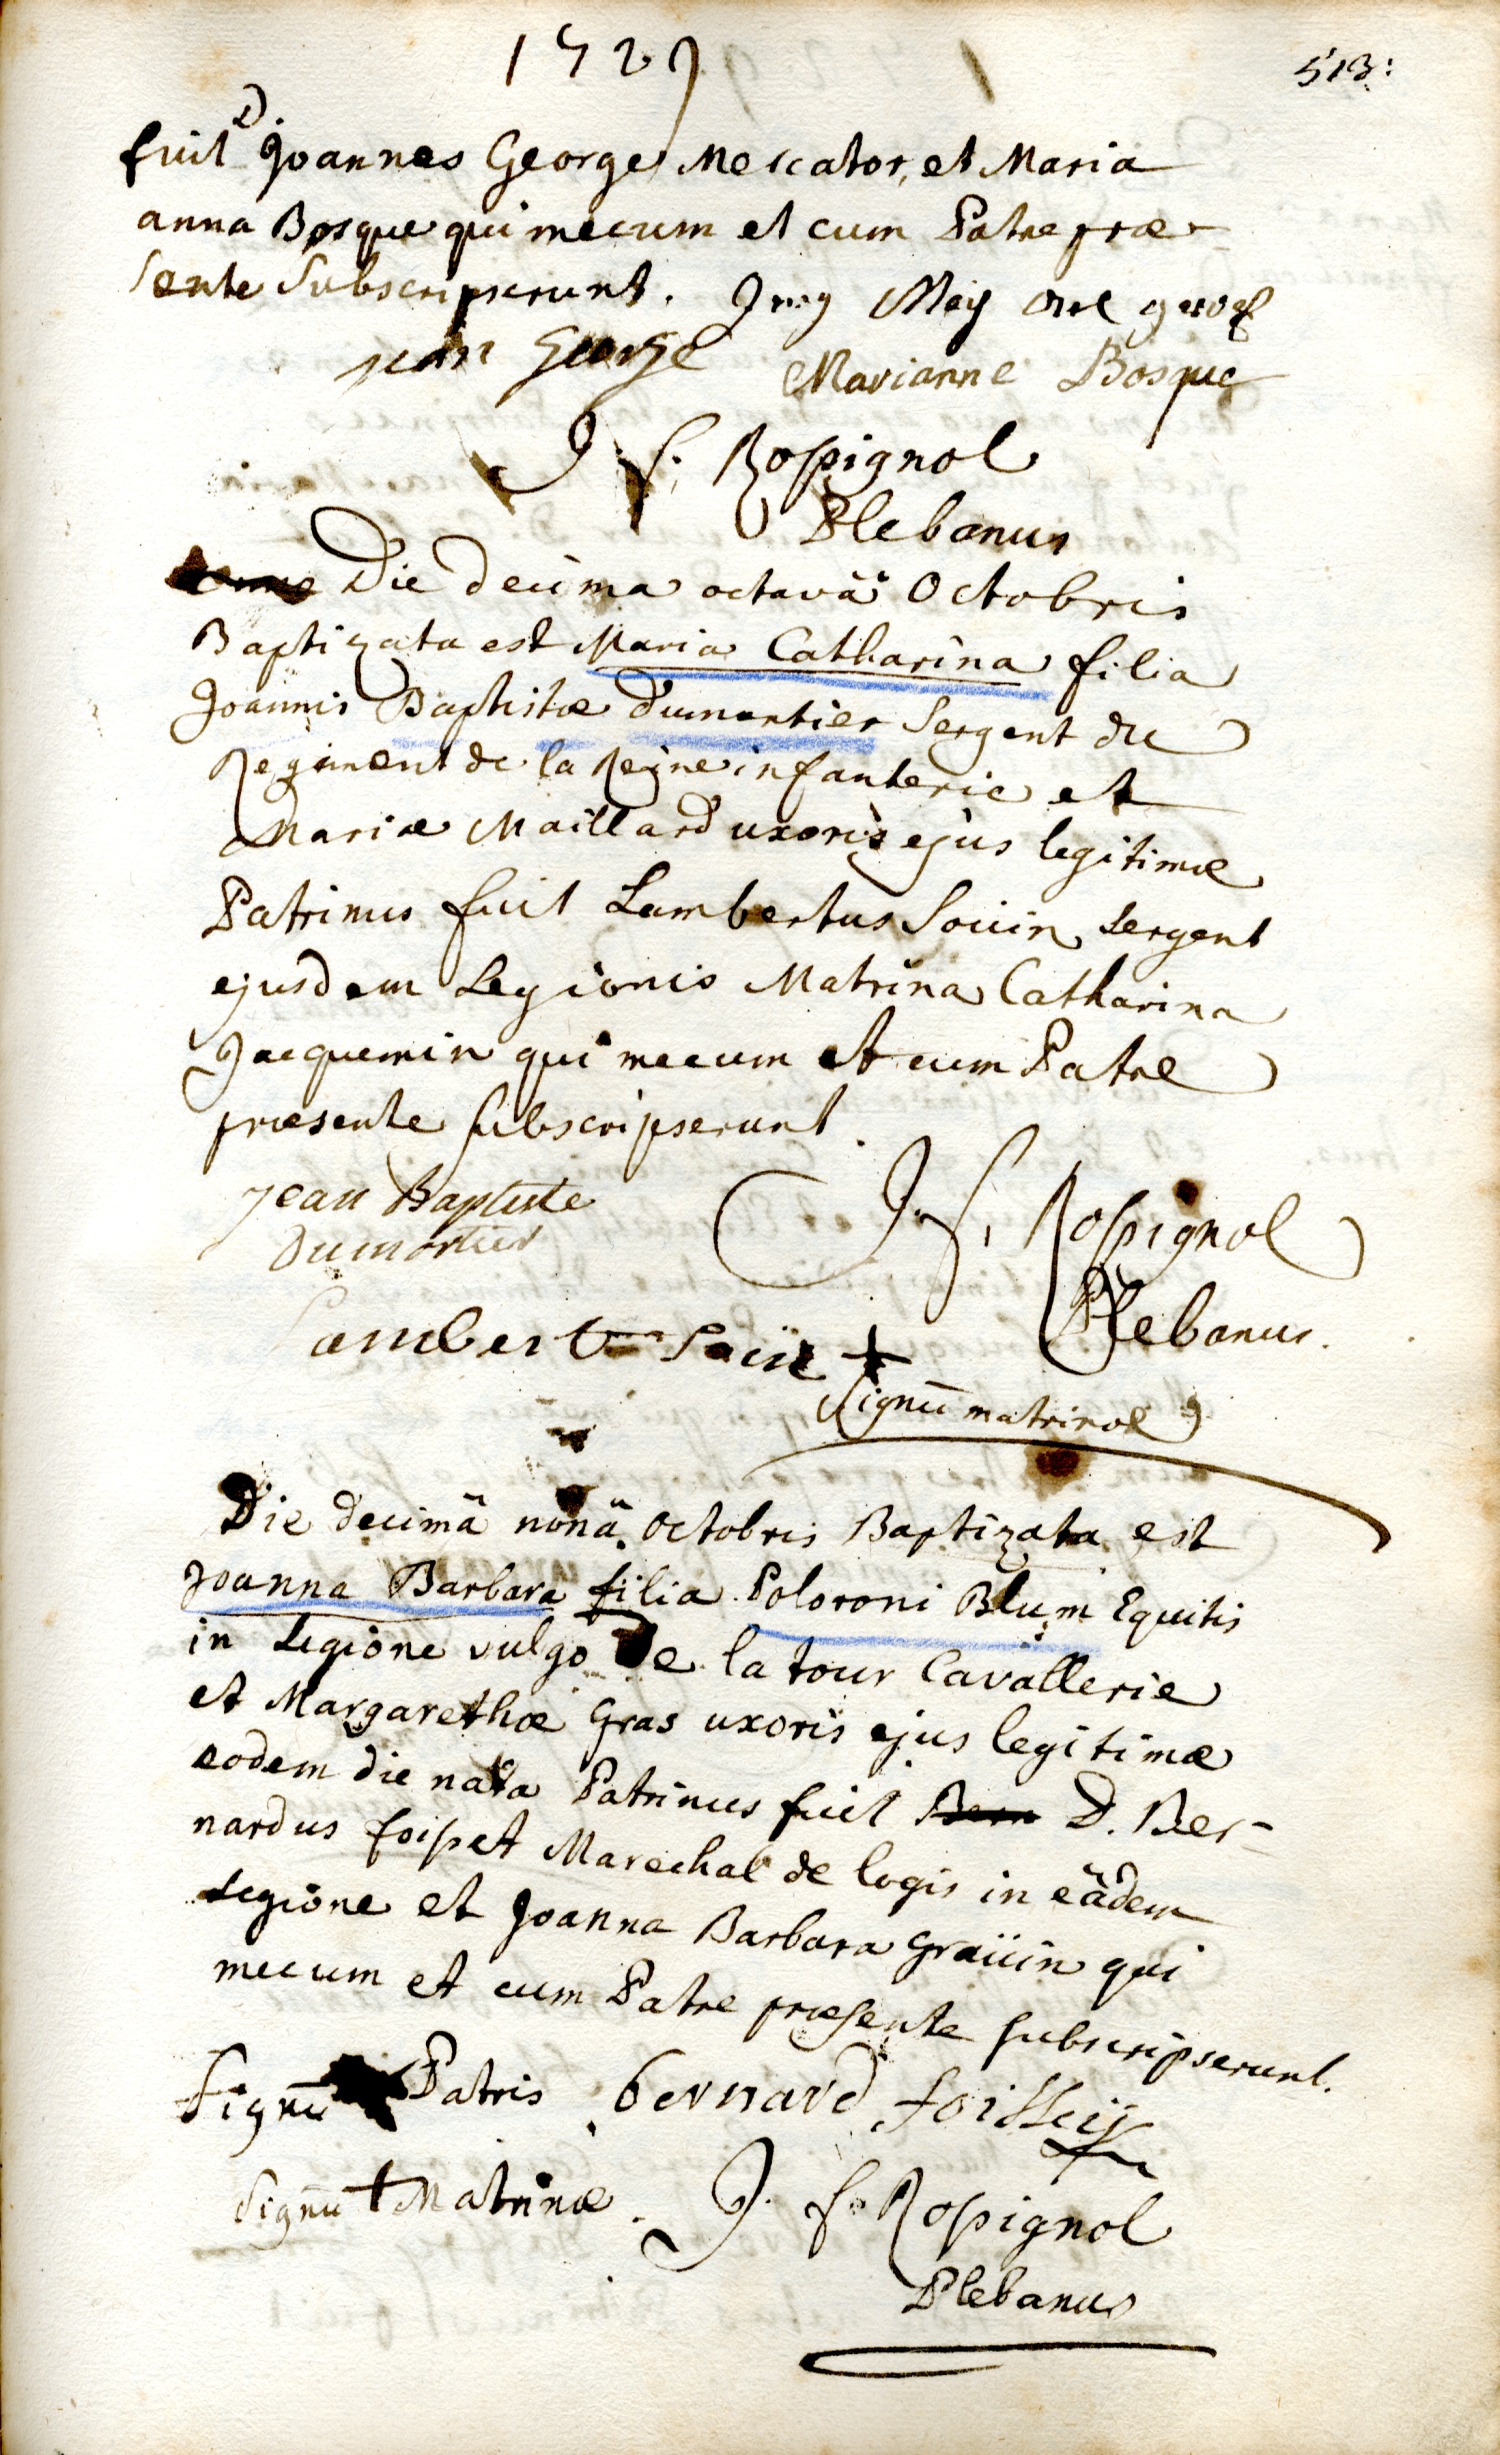 1729
513:
fuit D. Joannes George Mercator, et Maria
anna Bosque qui mecum et cum Patre præ-
sente Subscripserunt.
jean George
Marianne Bosque
J. f. Rossignol
Plebanus
Die decima octavâ Octobris
Baptizata est Maria Catharina filia
Joannis Baptistæ dumortier Sergent du
Regiment de la Reine infanterie et
Mariæ Maillard uxoris ejus legitimæ
Patrinus fuit Lambertus Souin Sergent
ejusdem Legionis Matrina Catharina
Jacquemin qui mecum et cum Patre
præsente subscripserunt.
jean Baptiste
Dumortier
J. f. Rossignol
Plebanus.
Lambert
+
Signū matrinæ
Die decimâ nonâ Octobris Baptizata est
Joanna Barbara filia Poloroni Blum Equitis
in Legione vulgo De la tour Cavallerie
et Margarethæ Gras uxoris ejus legitimæ
eodem die nata Patrinus fuit Bern D. Ber-
nardus foisset Marechal de logis in eâdem
Legione et Joanna Barbara Graüin qui
mecum et cum Patre præsente subscripserunt.
Signū Patris bernard foissey
Signū + Matrinæ. J. f. Rossignol
Plebanus